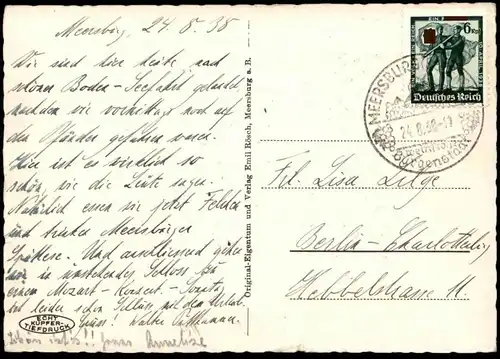 Meersburg, 24.8.38
Wir sind hier heute nach
schöner Boden-Seefahrt gelandet
nachdem wir vormittags noch auf
den Pfänder gefahren waren.
Hier ist es wirklich so
schön, wie die Leute sagen.
Natürlich essen wir jetzt Felchen
und trinken Meersburger
Spätlese. Und anschliessend gehen
wir in umstehendes Schloss zu
einem Mozart-Konzert.
ist leider schon Schluss mit dem Urlaub
Gruss! Walter
Schön ist's!! Annelise
ECHT
KUPFER-
TIEFDRUCK
Original-Eigentum und Verlag Emil Rösch, Meersburg a. B.
6
Deutsches Reich
MEERSBURG
24.8.38-19
Burgenstadt
Frl. Lisa Luge
Berlin-Charlottenbg
Hebbelstrasse 11